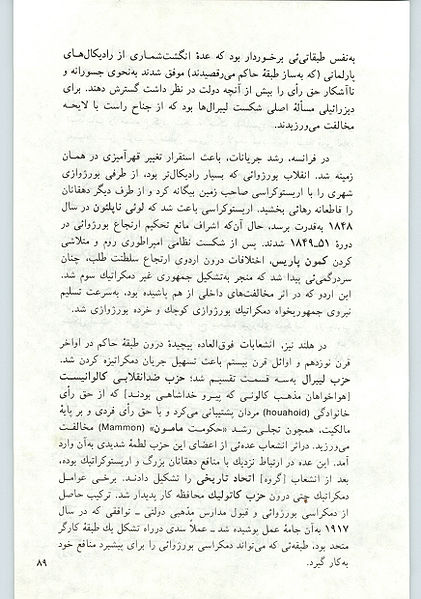 به‌نفس طبقاتی‌ئی برخوردار بود که عدهٔ انگشت‌شماری از رادیکال‌های
پارلمانی (که به‌ساز طبقهٔ حاکم می‌رقصیدند) موفق شدند به‌نحوی جسورانه و
ناآشکار حق رأی را بیش از آنچه دولت در نظر داشت گسترش دهند. برای
دیزرائیلی مسألهٔ اصلی شکست لیبرال‌ها بود که از جناح راست با لایحه
مخالفت می‌ورزیدند.
در فرانسه، رشد جریانات، باعث استقرار تغییر قهرآمیزی در همان
زمینه شد. انقلاب بورژوائی که بسیار رادیکال‌تر بود، از طرفی بورژوازی
شهری را با اریستوکراسی صاحب زمین بیگانه کرد و از طرف دیگر دهقانان
را قاطعانه رهائی بخشید. اریستوکراسی باعث شد که لوئی ناپلئون در سال
۱۸۴۸ به‌قدرت برسد، حال آن‌که اشراف مانع تحکیم ارتجاع بورژوائی در
دورهٔ ۵۱ـ۱۸۴۹ شدند. پس از شکست نظامی امپراطوری روم و متلاشی
کردن کمون پاریس، اختلافات درون اردوی ارتجاع سلطنت طلب، چنان
سردرگمی‌ئی پیدا شد که منجر به‌تشکیل جمهوری غیر دمکراتیک سوم شد.
این اردو که در اثر مخالفت‌های داخلی از هم پاشیده بود، به‌سرعت تسلیم
نیروی جمهوریخواه دمکراتیك بورژوازی کوچك و خرده بورژوازی شد.
در هلند نیز، انشعابات فوق‌العاده پیچیدهٔ درون طبقهٔ حاکم در اواخر
قرن نوزدهم و اوائل قرن بیستم باعث تسهیل جریان دمکراتیزه کردن شد.
حزب لیبرال به‌سه قسمت تقسیم شد؛ حزب ضدانقلابی کالوانیست
[هواخواهان مذهب کالونی که پیرو خداشاهی بودند] که از حق رأی
خانوادگی (houahoid) مردان پشتیبانی می‌کرد و با حق رأی فردی و بر پایهٔ
مالکیت، همچون تجلی رشد «حکومت مامون» (Mammon) مخالفت
می‌ورزید. دراثر انشعاب عده‌ئی از اعضای این حزب لطمهٔ شدیدی به‌آن وارد
آمد. این عده در ارتباط نزدیك با منافع دهقانان بزرگ و اریستوکراتیك بوده،
بعد از انشعاب [گروه] اتحاد تاریخی را تشکیل دادند. برخی عوامل
دمکراتیك حتی درون حزب کاتولیك محافظه کار پدیدار شد. ترکیب حاصل
از دمکراسی بورژوائی و قبول مدارس مذهبی دولتی ـ توافقی که در سال
۱۹۱۷ به‌آن جامهٔ عمل پوشیده شد ـ عملاً سدی درراه تشکل یك طبقهٔ کارگر
متحد بود، طبقه‌ئی که می‌تواند دمکراسی بورژوائی را برای پیشبرد منافع خود
به‌کار گیرد.
۸۹